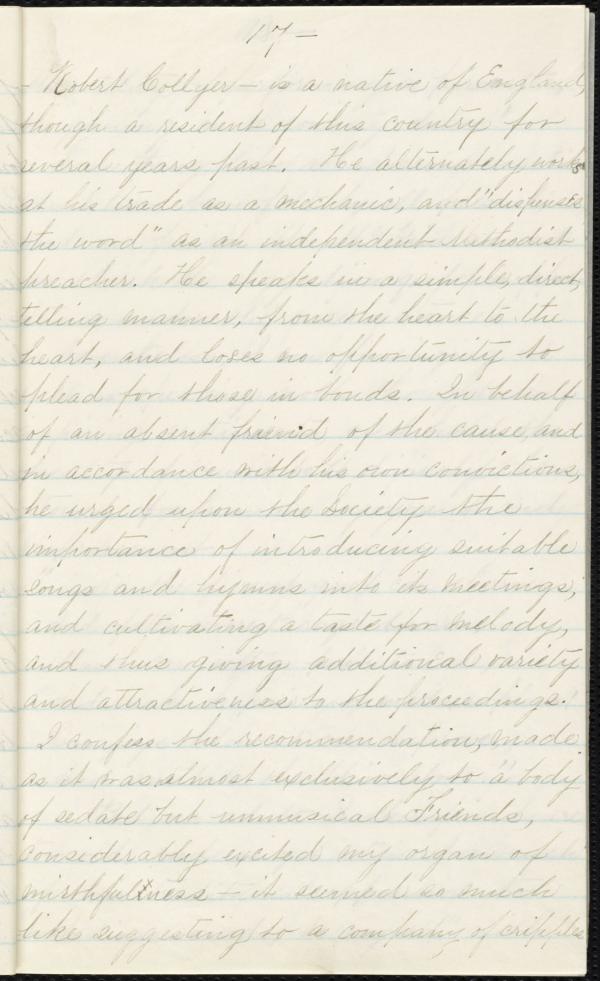 17—
- Robert Collyer — is a native of England,
though a resident of this country for
several years past. He alternately works
at his trade as a mechanic, and "dispenses
the word" as an independent Methodist
preacher. He speaks in a simple, direct,
telling manner, from the heart to the
heart, and loses no opportunity to
plead for those in bonds. In behalf
of an absent friend of the cause, and
in accordance with his own convictions,
he urged upon the Society the
importance of introducing suitable
songs and hymns into its meetings,
and cultivating a taste for melody,
and thus giving additional variety
and attractiveness to the proceedings.
I confess the recommendation, made
as it was almost exclusively to a body
of sedate but unmusical Friends,
considerably excited my organ of
mirthfulness — it seemed so much
like suggesting to a company of cripples